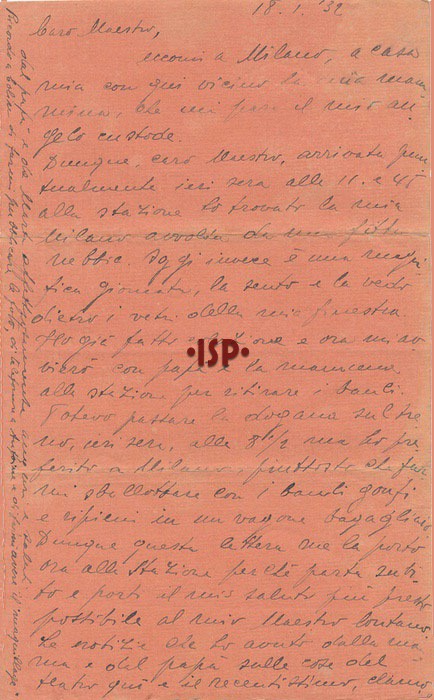 18.1.'32
Caro Maestro,
eccomi a Milano, a casa
mia con qui vicino la mia mam
mina, che mi pare il mio an
gelo custode.
Dunque, caro Maestro, arrivata pun
tualmente ieri sera alle 11 e 45
alla stazione ho trovato la mia
Milano avvolta da una fitta
nebbia. Oggi invece è una magni
fica giornata, la sento e la vedo
dietro i vetri della mia finestra
Ho già fatto e ora mi av
vierò con papà e la mammina
alla stazione per ritirare i bauli.
Potevo passare la dogana sul tre
no, ieri sera, alle 8 1/2 ma ho pre
ferito a Milano, piuttosto che far
mi sballottare con i bauli gonfi
e ripieni in un vagone bagagliaio
Dunque questa lettera me la porto
ora alla Stazione perchè parta subi
to e porti il mio saluto più presto
possibile al mio Maestro lontano.
Le notizie che ho avuto dalla mam
ma e dal papà sulle cose del
teatro qui e il recentissimo,
dal papà e da
Ricordo a
•ISP•